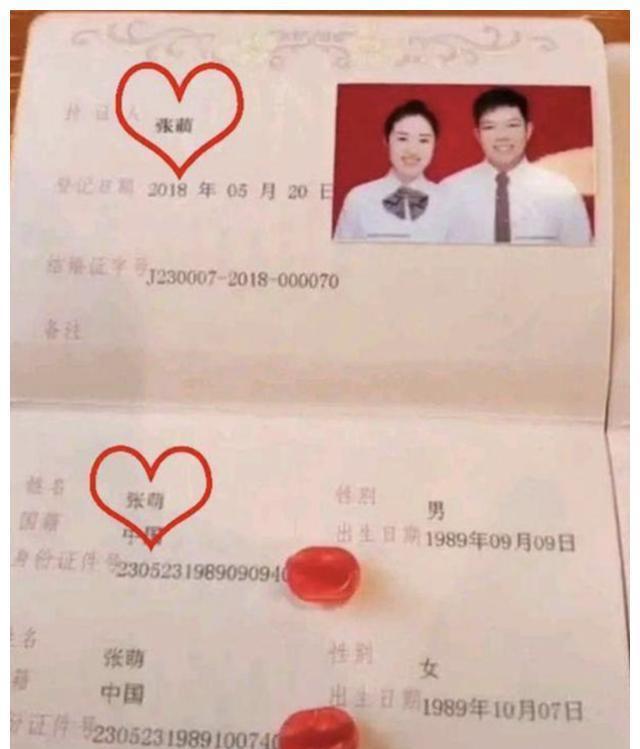 持证人 张萌
登记日期 2018 年 05 月 20 日
结婚证字号 J230007-2018-000070
备注
姓名 张萌 性别 男
国籍 中国 出生日期 1989年09月09日
身份证件号 2305231989090940
姓名 张萌 性别 女
国籍 中国 出生日期 1989年10月07日
身份证件号 2305231989100740